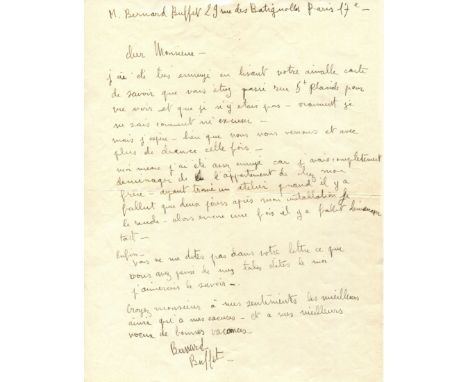 M. Bernard Buffet 29 rue des Batignolles Paris 17e -
cher Monsieur -
j'ai été très ennuyé en lisant votre aimable carte
de savoir que vous étiez passé rue St Placide pour
me voir et que je n'y étais pas - vraiment je
ne sais comment m'excuser -
mais j'espère - bien que nous nous verrons et avec
plus de chance cette fois -
moi même j'ai été aussi ennuyé car j'avais complètement
déménagé de l'appartement de chez mon
frère - ayant trouvé un atelier quand il y a
fallut que deux jours après mon installation je
le rende - alors encore une fois il y a fallut déménager
tout -
Enfin -
vous ne me dites pas dans votre lettre ce que
vous avez pensé de mes toiles dites le moi
j'aimerais le savoir -
Croyez monsieur à mes sentiments les meilleurs
ainsi qu'à mes excuses - et à mes meilleurs
voeux de bonnes vacances -
Bernard
Buffet -